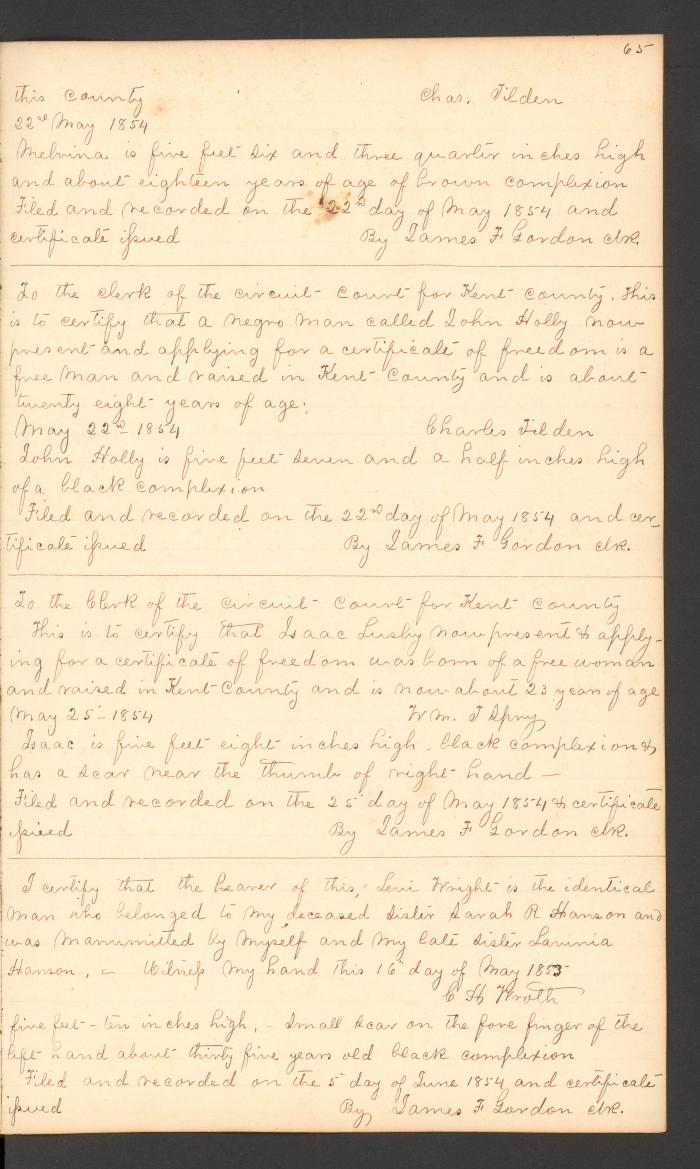 65
this county Chas. Tilden
22nd May 1854
Melvina is five feet six and three quarter inches high
and about eighteen years of age of brown complexion
Filed and recorded on the 22nd day of May 1854 and
certificate issued By James F Gordon clk.
To the clerk of the circuit court for Kent county. This
is to certify that a negro man called John Holly now
present and applying for a certificate of freedom is a
free man and raised in Kent County and is about
twenty eight years of age.
May 22nd 1854 Charles Tilden
John Holly is five feet seven and a half inches high
of a black complexion
Filed and recorded on the 22nd day of May 1854 and cer-
tificate issued By James F Gordon clk.
To the Clerk of the circuit court for Kent county
This is to certify that Isaac Lusby now present & apply-
ing for a certificate of freedom was born of a free woman
and raised in Kent County and is now about 23 years of age
May 25 - 1854 Wm. T Spry
Isaac is five feet eight inches high - black complexion &
has a scar near the thumb of right hand —
Filed and recorded on the 25 day of May 1854 & certificate
issued By James F Gordon clk.
I certify that the bearer of this, Levi Wright is the identical
man who belonged to my deceased sister Sarah R Hanson and
was manumitted by myself and my late sister Lavinia
Hanson, - Witness my hand this 16 day of May 1853
C H Wroth
five feet - ten inches high, - small scar on the fore finger of the
left hand about thirty five years old black complexion
Filed and recorded on the 5 day of June 1854 and certificate
issued By James F Gordon clk.